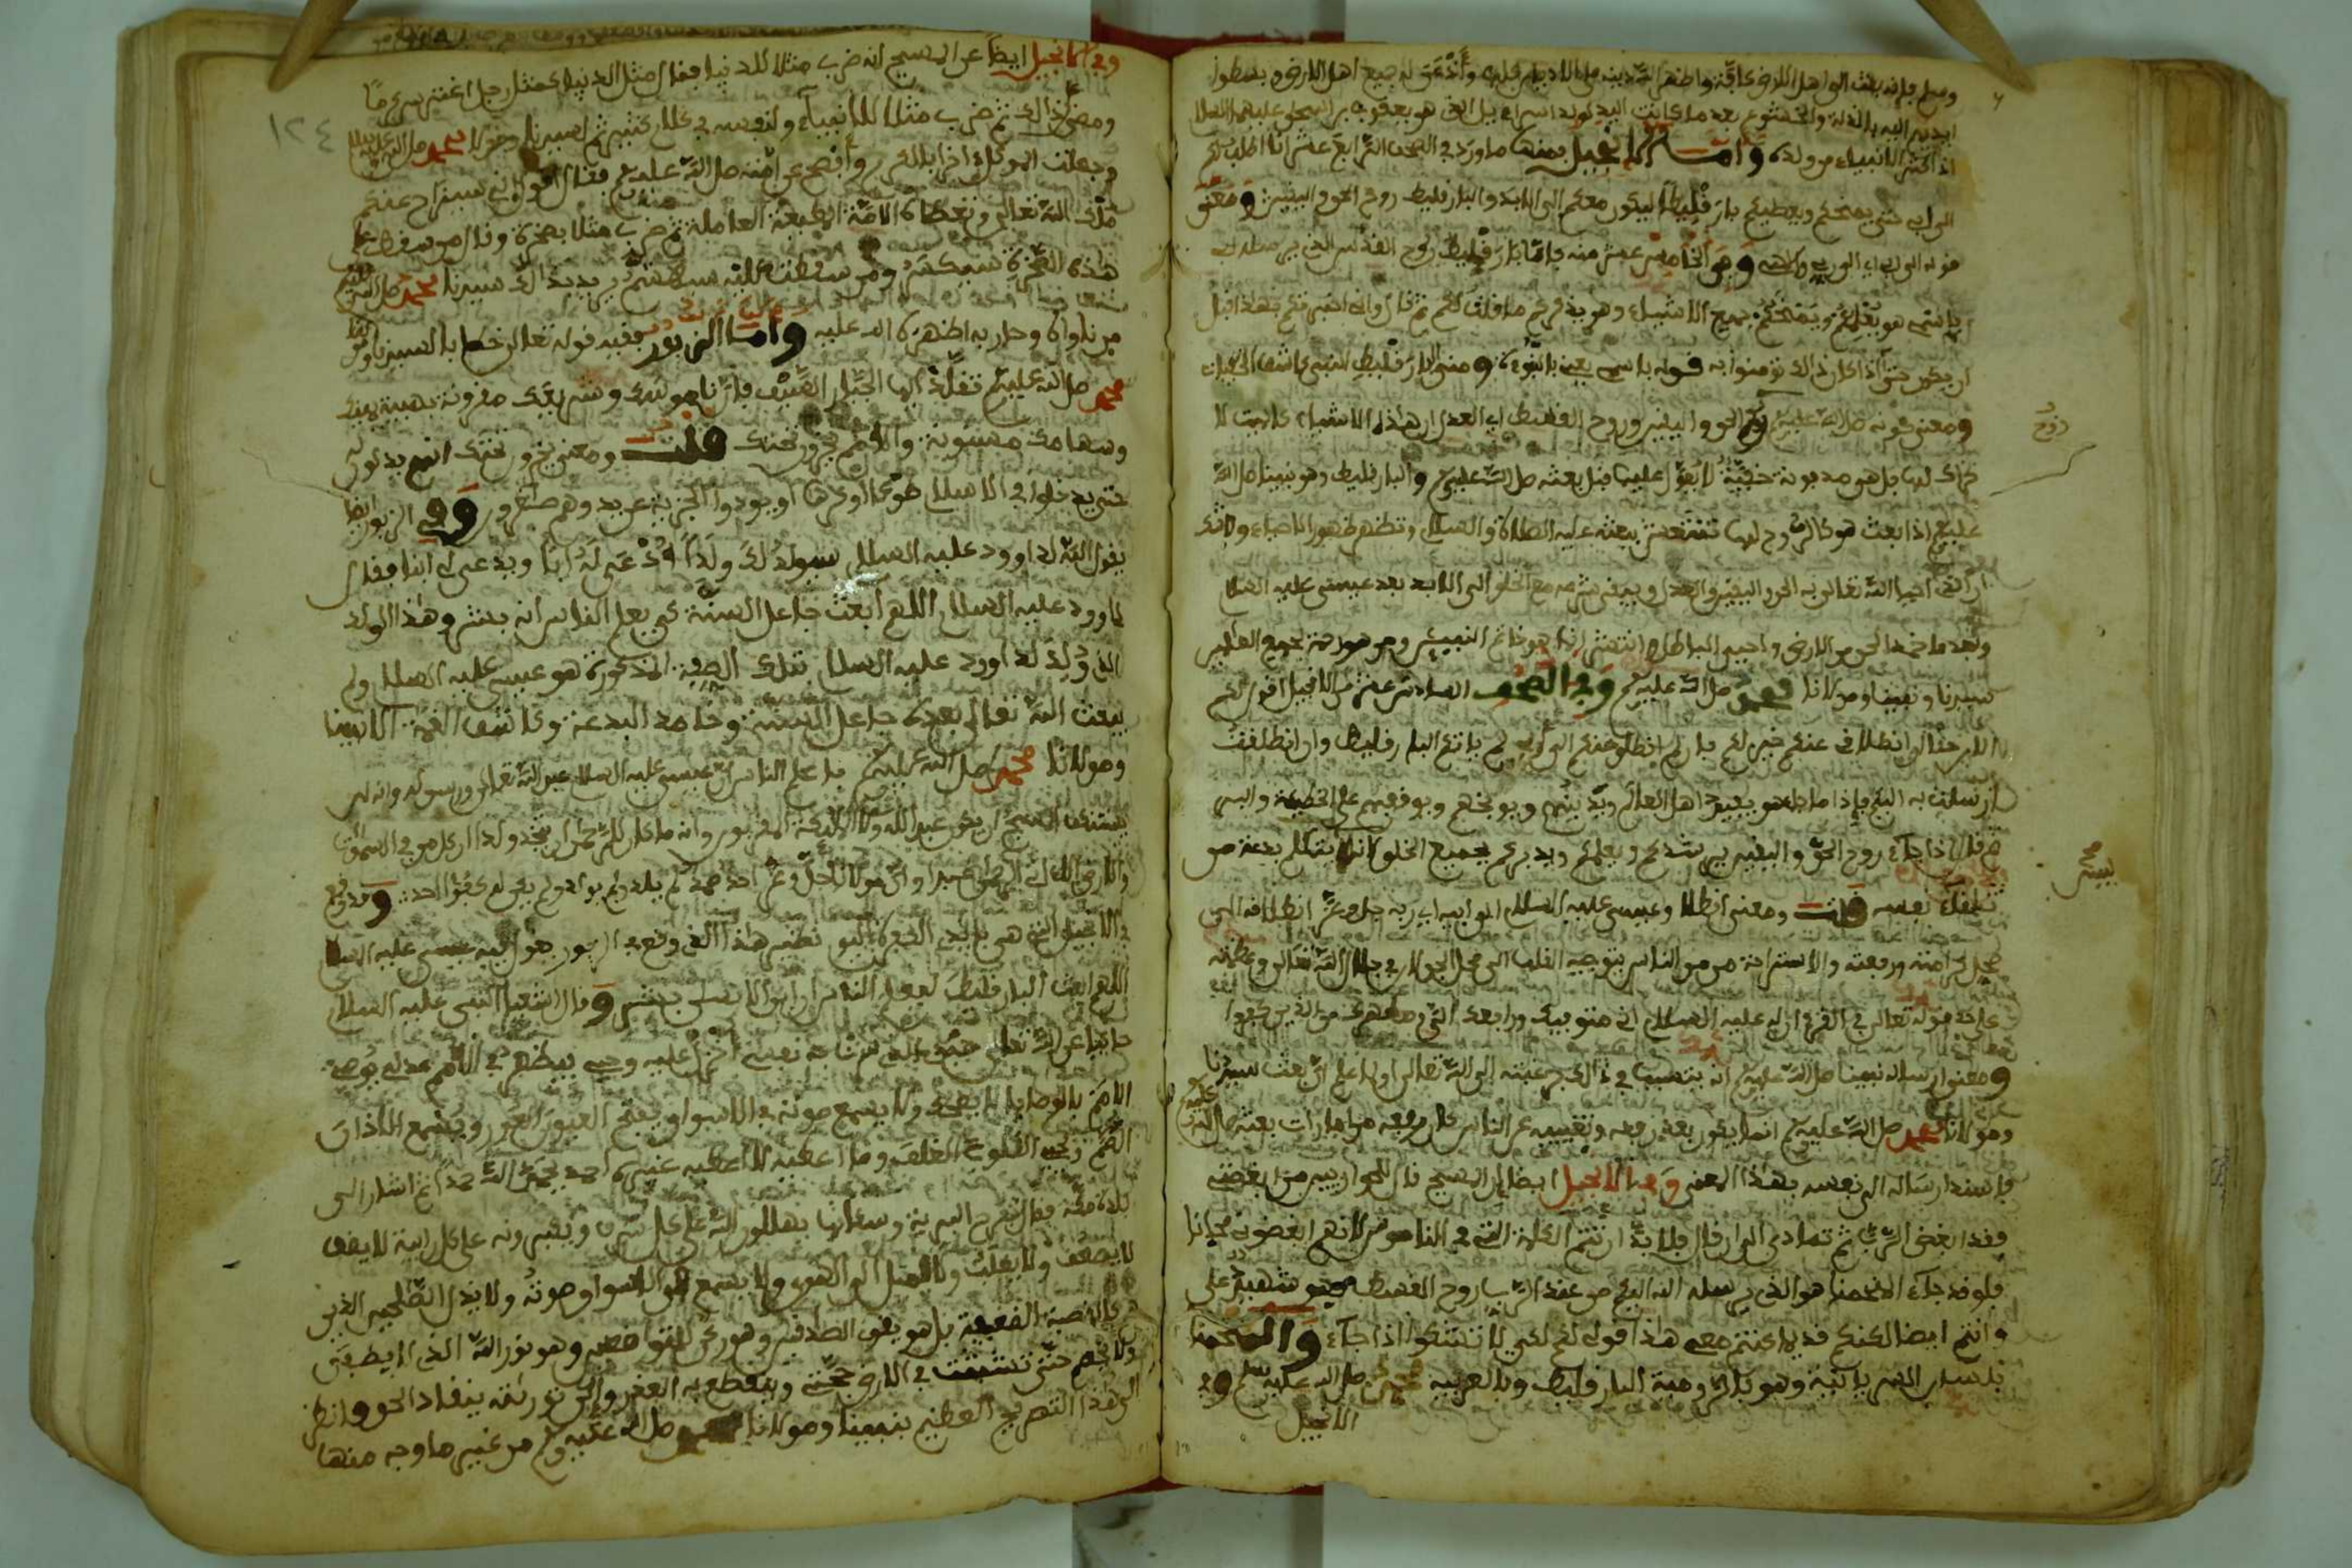 وسلم فإنه بعث الى اهل الارض كافة واظهر الله دينه على الاديان كلها وأذعن له جميع اهل الارض وبسطوا
ايديهم اليه بالذلة والخشوع بعد ما كانت اليد لولد اسراءيل الذى هو يعقوب بن اسحاق عليهما السلام
اذ اكثر الانبياء من ولده وأمـــا الانجيل فمنها ما ورد فى الصحف الرابع عشر انا اطلب لكم
الى ابى حتى يمنحكم ويعطيكم بارقليطا ليكون معكم الى الابد والبارقليط روح الحق واليقين ومعنى
قوله الى ابى اى الى ربى وفى الخامس عشر منه فاما البارقليط روح القدس الذى يرسله
باسمى هو يعلمكم ويمنحكم جميع الاشياء وهو يذكركم ما قلت لكم ثم قال وانى اخبرتكم بهذا قبل
ان يكون حتى اذا كان ذلك تومنوا به قوله باسمى يعنى بالنبوءة ومعنى البارقليط
ومعنى كونه صلى الله عليه وسلم روح الحق واليقين وروح القسط اى العدل ان هذه الاشياء كانت لا
حراك لها بل هى مدفونة خفية قبل بعثه صلى الله عليه وسلم والبارقليط وهو نبينا صلى الله
عليه وسلم اذا بعث هو كالروح لها تنتعش ببعثه عليه الصلاة والسلام وتظهر ظهور الاحياء ولا شك
ان الذى احيا الله تعالى به الحق واليقين والعدل وبقى شرعه مع الخلق الى الابد بعد عيسى عليه السلام
وبعد ما خمد الحق من الارض واحيى الباطل وانتعش انما هو خاتم النبيين ومن هو رحمة لجميع العالمين
سيدنا ونبينا ومولانا محمد صلى الله عليه وسلم وفى الصحف السادس عشر من الانجيل اقول لكم
الان حقا ان انطلاقى عنكم خير لكم فإن لم انطلق عنكم الى ابى لم ياتكم البارقليط وان انطلقت
ارسلت به اليكم فإذا ما جاء هو يفيد اهل العالم ويدينهم ويوبخهم ويوقفهم على الخطيئة والبر
ثم قال اذا جاء روح الحق واليقين يرشدكم ويعلمكم ويدبركم بجميع الخلق لانه ليس يتكلم بدعة من
تلقاء نفسه قلت ومعنى انطلاق عيسى عليه السلام الى ابيه اى ربه جل وعز انطلاقه الى
محل كرامته ورفعته والاستراحة من الناس بتوجيه القلب الى محل الجولان فى جلال الله تعالى وعظمته
على حد قوله تعالى فى القرءان له عليه السلام انى متوفيك ورافعك الى ومطهرك من الذين كفروا
ومعنى ارساله نبينا صلى الله عليه وسلم انه يتسبب فى ذلك برغبته الى الله تعالى او باعلام ان بعث سيدنا
ومولانا محمد صلى الله عليه وسلم انما يكون بعد رفعه وتغييبه عن الناس كان رفعه من امارات بعثه صلى الله عليه وسلم
فاسند ارساله الى نفسه بهذا المعنى وفى الانجيل ايضا ان المسيح قال للحواريين من ابغضنى
فقد ابغض الرب ثم تمادى الى ان قال فلا بد ان تتم الكلمة التى فى الناموس لانهم ابغضونى مجانا
فلو قد جاء المنحمنا هو الذى يرسله الله اليكم من عند الرب روح القسط وهو شهيد على
وانتم ايضا لكنكم قديما كنتم معى هذا قولى لكم لكى لا تشكوا اذا جاء والمنحمنا
بلسان السريانية وهو بالرومية البارقليط وبالعربية محمد صلى الله عليه وسلم وفى
الانجيل
روح
١٢٤
وفى الانجيل ايضا عن المسيح انه ضرب مثلا للدنيا فقال مثل الدنيا كمثل رجل اغترس كرما
ومضى كذلك ثم ضرب مثلا للانبياء ولنفسه فى كلام كثير ثم لسيدنا ومولانا محمد صلى الله عليه وسلم
وجعلت الموكل اخرا بالكرم وأفصح عن امته صلى الله عليه وسلم فقال اقول انه سيزاح عنكم
ملك الله تعالى وتعطاه الامة المطيعة العاملة ثم ضرب مثلا بصخرة وقال من سقط على
هذه الصخرة سينكسر ومن سقطت عليه سينهشم يريد بذلك سيدنا محمد صلى الله عليه وسلم
من ناواه وحاربه اظهره الله عليه وأمــا الزبور ففيه قوله تعالى خطابا لسيدنا ومولانا
محمد صلى الله عليه وسلم تقلد ايها الجبار السيف فإن ناموسك وشريعتك مقرونة بهيبة يمينك
وسهامك مسنونة والامم يخرون تحتك قلت ومعنى يخرون تحتك
حتى يدخلوا فى الاسلام طوعا او كرها او يودوا الجزية عن يد وهم صاغرون وفى الزبور ايضا
يقول الله لداوود عليه السلام سيولد لك ولد أدعى له ابا ويدعى لى ابنا فقال
داوود عليه السلام اللهم ابعث جاعل السنة كى يعلم الناس انه بشر وهذا الولد
الذى ولد لداوود عليه السلام بتلك الصفة المذكورة هو عيسى عليه السلام ولم
يبعث الله تعالى بعده جاعل السنة وخامد البدعة وكاشف الغمة الا نبينا
ومولانا محمد صلى الله عليه وسلم فاعلم الناس ان عيسى عليه السلام عبد الله تعالى ورسوله وانه لن
يستنكف المسيح ان يكون عبدا لله ولا الملائكة المقربون وانه ما كان للرحمن ان يتخذ ولدا ان كل من فى السماوات
والارض الا ءاتى الرحمن عبدا وان مولانا جل وعز احد صمد لم يلد ولم يولد ولم يكن له كفؤا احد وقد وقع
فى الانجيل الذى هو بايدى النصارى اليوم نظير هذا الذى وقع فى الزبور هو ان عيسى عليه السلام
اللهم ابعث البارقليط ليعلم الناس ان ابن الانسان بشر وقال اشعيا النبى عليه السلام
حاكيا عن الله تعالى عبدى الذى سرت به نفسى أنزل عليه وحيى فيظهر فى الامم عدلى يوصى
الامم بالوصايا لا يضحك ولا يسمع صوته فى الاسواق يفتح العيون العور ويسمع الاذان
الصم ويحيى القلوب الغلف وما اعطيه لا اعطيه غيره احمد يحمد الله حمدا ثم اشار الى
بلده مكة فقال تفرح البرية وسكانها يهللون الله على كل شرف ويكبرونه على كل رابية لا يضعف
ولا يغلب ولا يميل الى الهوى ولا يسمع فى الاسواق صوته ولا يذل الصالحين الذين
كالقصبة الضعيفة بل هو يقوى الصديقين وهو ركن للمتواضعين وهو نور الله الذى لا يطفى
ولا يخصم حتى تثبت فى الارض حجتى وينقطع به العذر والى توراته ينقاد الحق وانظر
الى هذا التصريح العظيم بنبينا ومولانا محمد صلى الله عليه وسلم من غير ما وجه منها